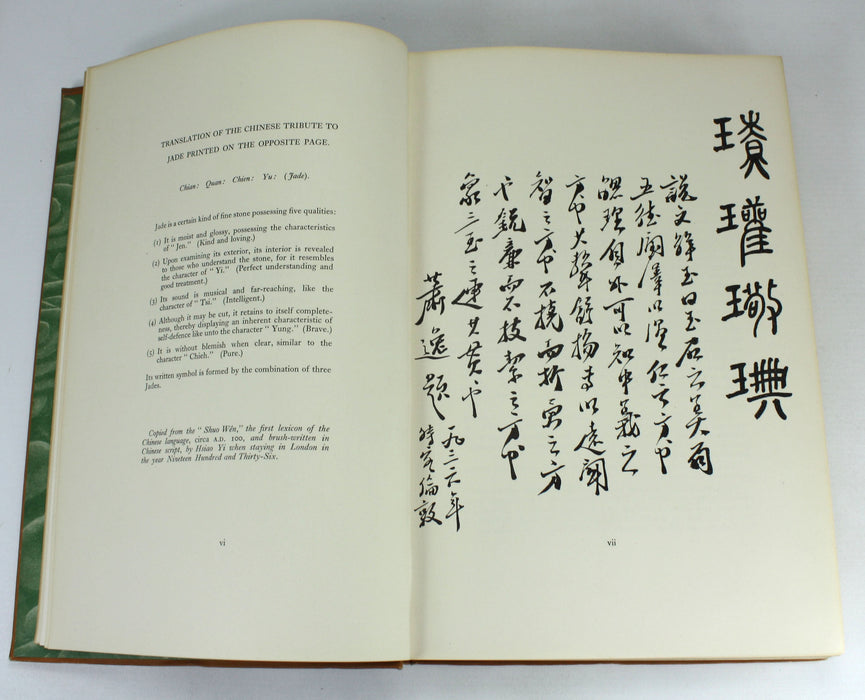 TRANSLATION OF THE CHINESE TRIBUTE TO
JADE PRINTED ON THE OPPOSITE PAGE.
Chian: Quan: Chien: Yu: (Jade).
Jade is a certain kind of fine stone possessing five qualities:
(1) It is moist and glossy, possessing the characteristics
of "Jen." (Kind and loving.)
(2) Upon examining its exterior, its interior is revealed
to those who understand the stone, for it resembles
the character of "Yi." (Perfect understanding and
good treatment.)
(3) Its sound is musical and far-reaching, like the
character of "Tsi." (Intelligent.)
(4) Although it may be cut, it retains to itself complete-
ness, thereby displaying an inherent characteristic of
self-defence like unto the character "Yung." (Brave.)
(5) It is without blemish when clear, similar to the
character "Chieh." (Pure.)
Its written symbol is formed by the combination of three
Jades.
Copied from the "Shuo Wên," the first lexicon of the
Chinese language, circa A.D. 100, and brush-written in
Chinese script, by Hsiao Yi when staying in London in
the year Nineteen Hundred and Thirty-Six.
vi
瓘璥琠
說文解玉曰玉石之美有
五德潤澤以溫仁之方也
䚡理自外可以知中義之
方也其聲舒揚專以遠聞
智之方也不撓而折勇之方
也銳廉而不技絜之方也
象三玉之連其貫也
蕭逸題
一九三六年
時客倫敦
vii